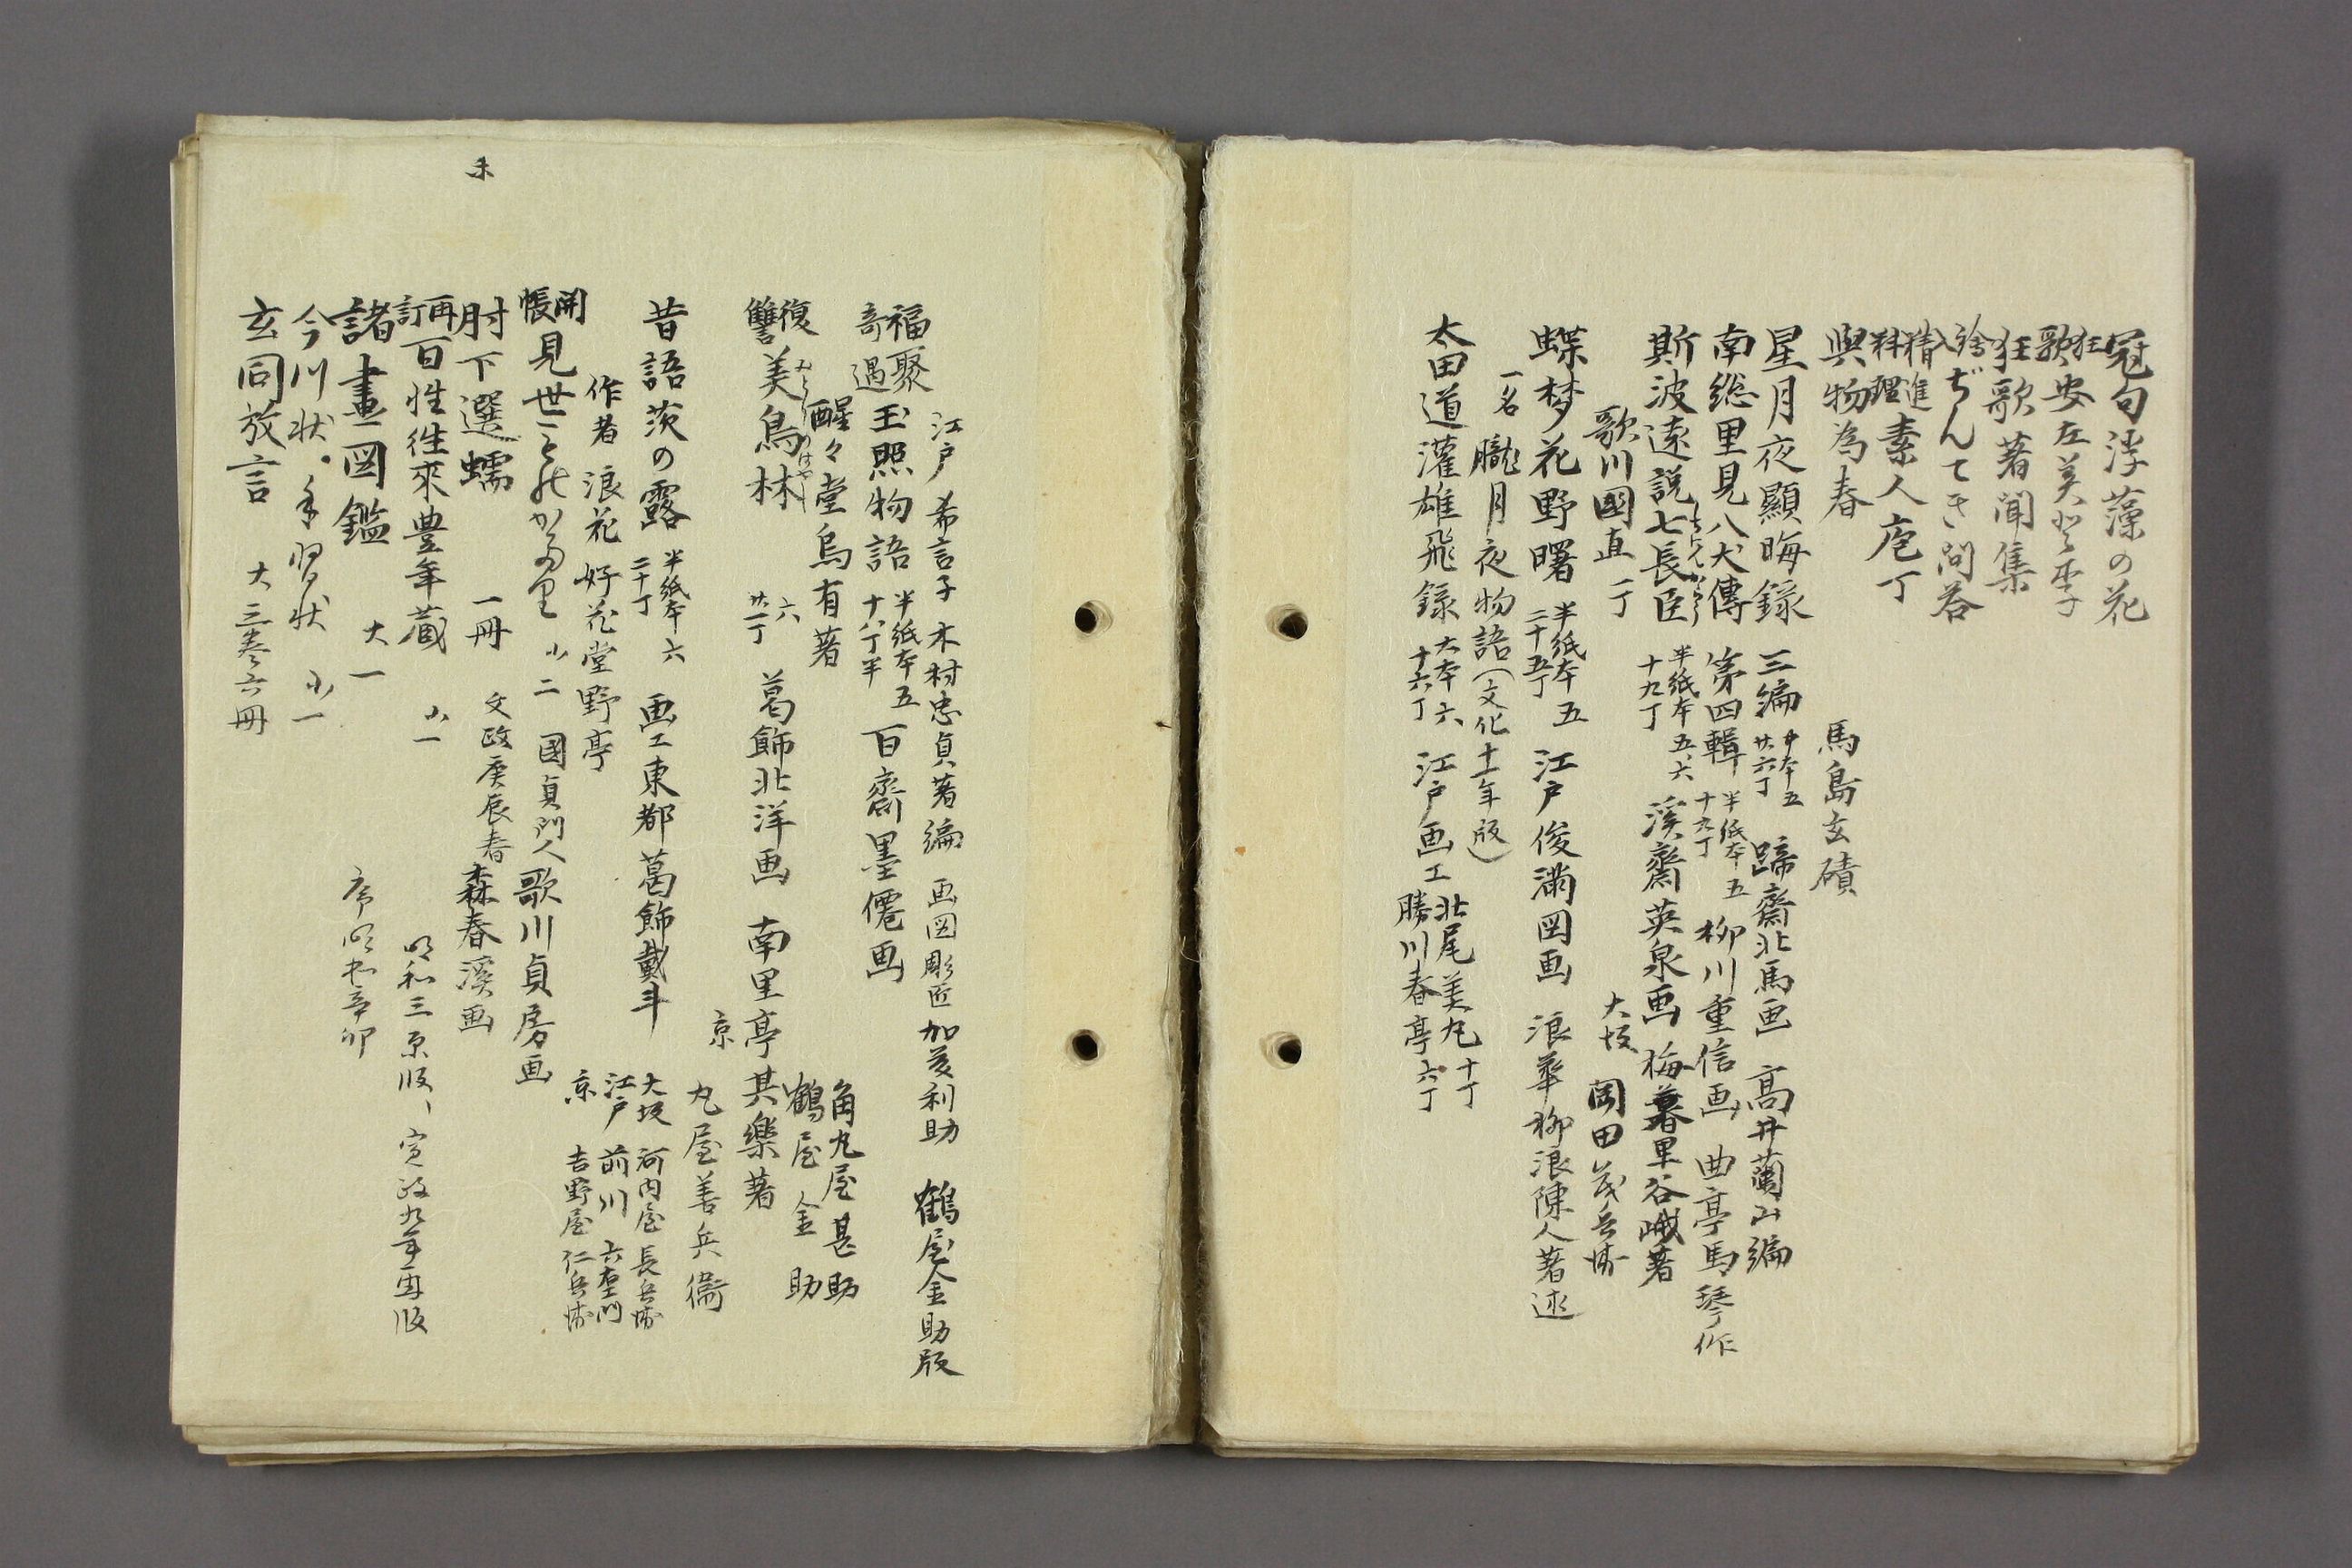 冠句浮藻の花
狂歌安左美登李
狂歌著聞集
ぢんてき問答
精進料理素人庖丁
與物為春　馬島玄磧
星月夜顯晦録　三編　半本五　廿六丁　蹄齋北馬画　高井蘭山編
南総里見八犬傳　第四輯　半紙本五　十九丁　柳川重信画　曲亭馬琴作
斯波遠説七長臣　半紙本五、六　十九丁　溪齋英泉画　梅暮里谷峨著
歌川國直　一丁　大坂　岡田茂兵衛
蝶梦花野曙　半紙本五　二十五丁　江戸俊満図画　浪華柳浪陳人著述
一名　朧月夜物語（文化十一年版）
太田道灌雄飛録　大本六　十六丁　江戸画工　北尾美丸十丁　勝川春亭六丁
江戸　希言子　木村忠貞著編　画図彫匠　加菱利助　鶴屋金助版
福聚奇遇　玉照物語　半紙本五　十八丁半　百齋墨僊画
醒々堂烏有著　角丸屋甚助　鶴屋金助
復讐　美鳥林　六　廿一丁　葛飾北洋画　南里亭其樂著
京　丸屋善兵衞
昔語茨の露　半紙本六　二十丁　画工東都葛飾戴斗
大坂　河内屋長兵衛
作者　浪花　好花堂野亭　江戸　前川六左衛門
京　吉野屋仁兵衛
開帳　見世　小二　國貞門人歌川貞房画
肘下選蠕　一冊　文政庚辰春　森春溪画
再訂　百性往來豊年蔵　小一　明和三原版、寛政九年再版
諸畫図鑑　大一　序明和辛卯
今川状・手習状　小一
玄同放言　大三巻六冊